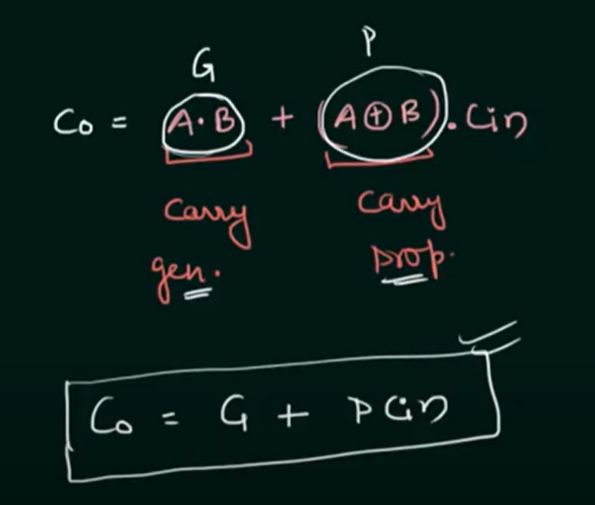 G P
Co = A·B + (A⊕B).Cin
Carry Carry
gen. prop.
Co = G + PCin